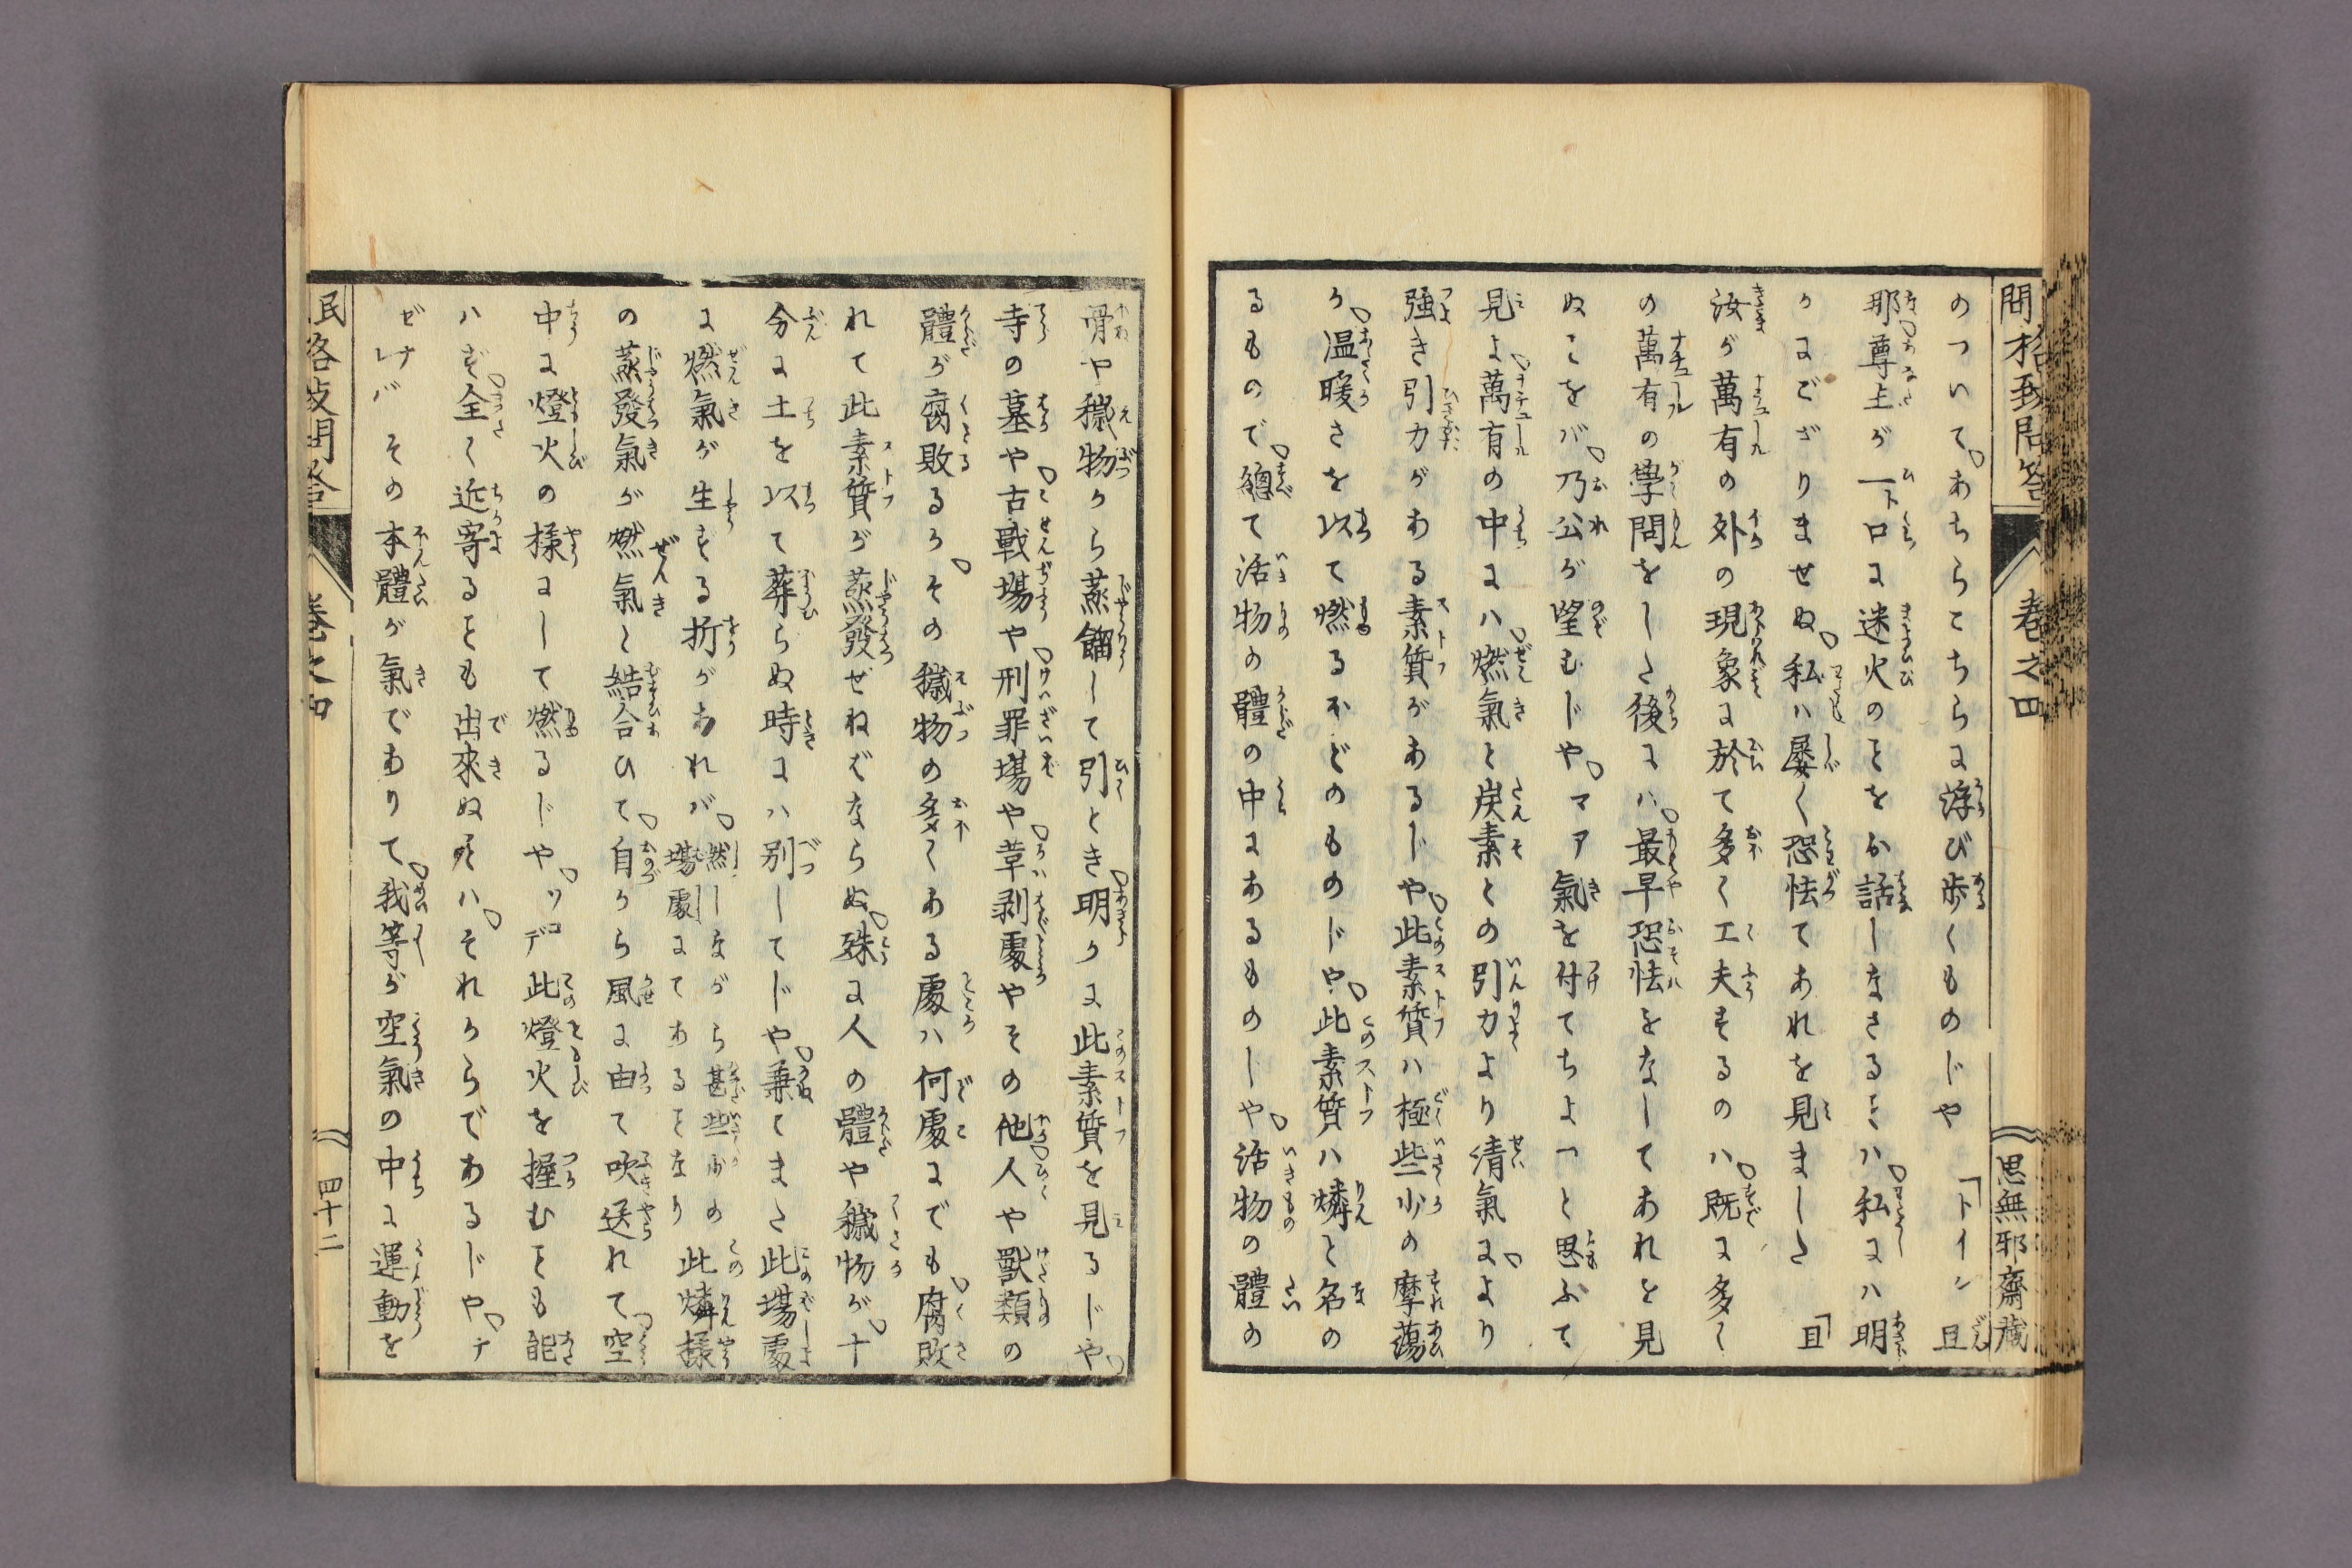 のついて、あちらこちらに浮び歩くものじや 「トイシ 且
那尊主が一ト口に迷火のヿをお話しなさるヿハ、私にハ明
かにござりませぬ、私ハ屡〱恐怯てあれを見ました 「且
汝が萬有の外の現象に於て多く工夫をするのハ、既に多く
の萬有の學問をした後にハ、最早恐怯をなしてあれを見
ぬこをバ、乃公が望むじや、マア氣を付てちよつと思ふて
見よ、萬有の中にハ、燃氣と炭素との引力より清氣に、より
強き引力がある素質があるじや、此素質ハ極些少の摩蕩
か、温暖さを以て燃るほどのものじや、此素質ハ燐と名の
るもので、總て活物の體の中にあるものしや、活物の體の
問格致問答 巻之四 思無邪齋蔵
骨や穢物から蒸餾して引とき、明かに此素質を見るじや、
寺の墓や、古戰塲や、刑罪塲や、革剥處やその他、人や獸類の
體が腐敗るか、その穢物の多くある處ハ何處にでも、腐敗
れて此素質が蒸發せねばならぬ、殊に人の體や穢物が、十
分に土を以て葬らぬ時にハ別してじや、兼てまた此塲處
に燃氣が生ずる折があれバ、然しながら甚些少の此燐様
塲處にてあるヿなり
の蒸發氣が燃氣と結合ひて、自から風に由て吹送れて、空
中に燈火の様にして燃るじや、ソコデ此燈火を握むヿも能
ハず、全く近寄るヿも出來ぬ㕝ハ、それからであるじや、ナ
ゼナレバその本體が氣でありて、我等が空氣の中に運動を
民格致問答 巻之四 四十二